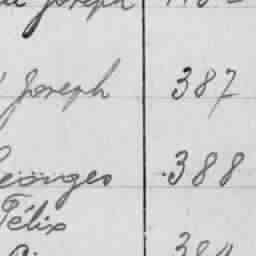 Joseph
Joseph 387
Georges 388
Félix